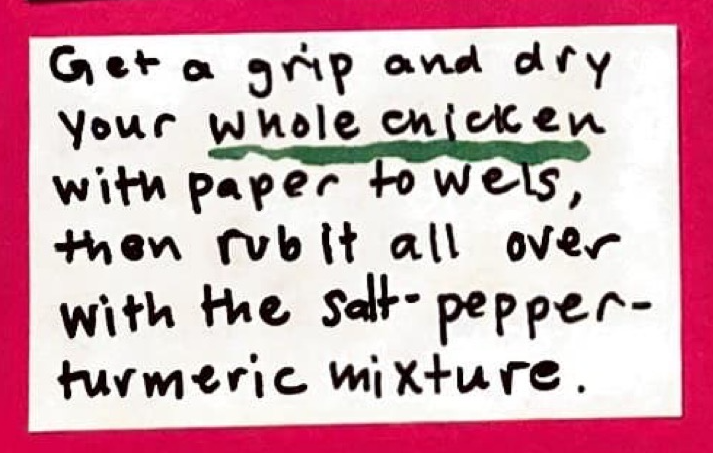 Get a grip and dry
your whole chicken
with paper towels,
then rub it all over
with the salt-pepper-
turmeric mixture.